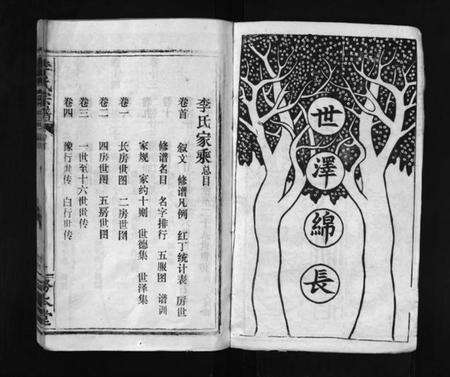 世澤綿長
李氏家乘总目
卷首 叙文 修谱凡例 红丁统计表 房世
修谱名目 名字排行 五服图 谱训
家规 家约十则 世德集 世泽集
卷一 长房世图 二房世图
卷二 四房世图 五房世图
卷三 一世至十六世世传
卷四 豫行世传 白行世传